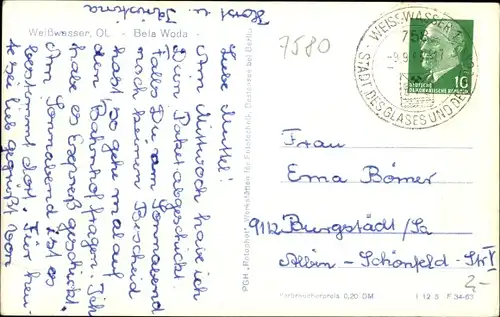 Weißwasser, OL - Bela Woda -
7580
Liebe Muttel!
Am Mittwoch habe ich
Dein Paket abgeschickt.
Falls Du am Sonnabend
noch keinen Bescheid
hast, so gehe mal auf
den Bahnhof fragen. Ich
habe es Expreß geschickt.
Am Sonnabend ist es
bestimmt dort. Für heu-
te sei lieb gegrüßt von
Horst u.
PGH „Rotophot“, Werkstätten für Fototechnik, Bestensee bei Berlin
WEISSWASSER
STADT DES GLASES UND DER
10
DEUTSCHE
DEMOKRATISCHE REPUBLIK
Frau
Erna Börner
9112 Burgstädt/Sa
Albin-Schönfeld-Str
2,-
Verbraucherpreis 0,20 DM
I 12 5 F 34-63